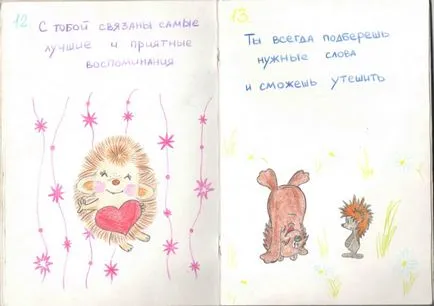 12
С тобой связаны самые
лучшие и приятные
воспоминания
13.
Ты всегда подберешь
нужные слова
и сможешь утешить